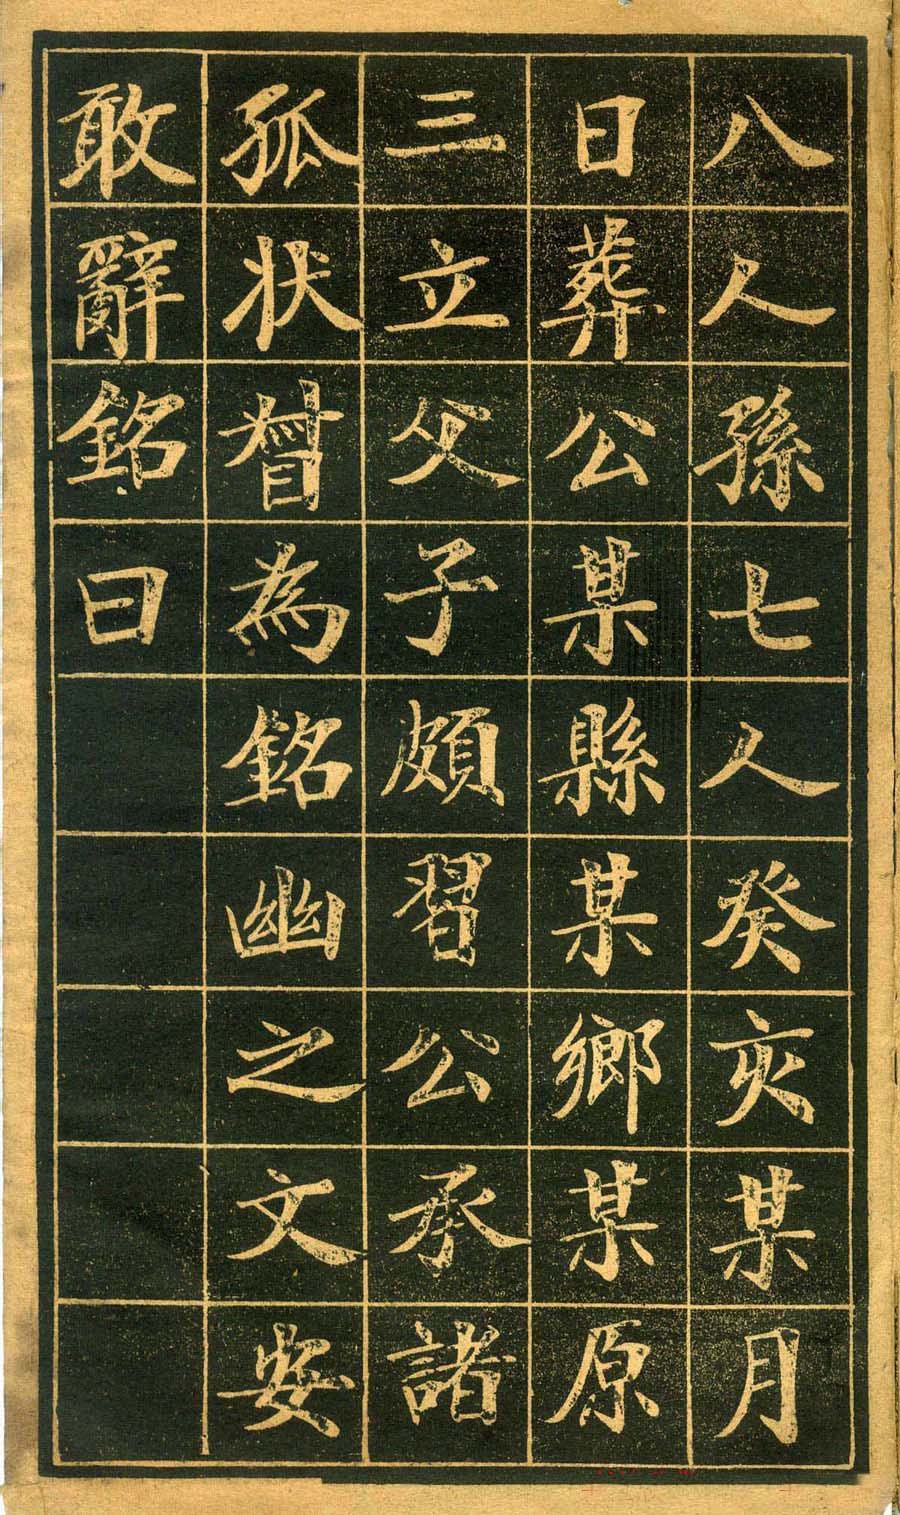 八人孫七人癸亥某月
日葬公某縣某鄉某原
三立父子頗習公承諸
孤狀督為銘幽之文安
敢辭銘曰